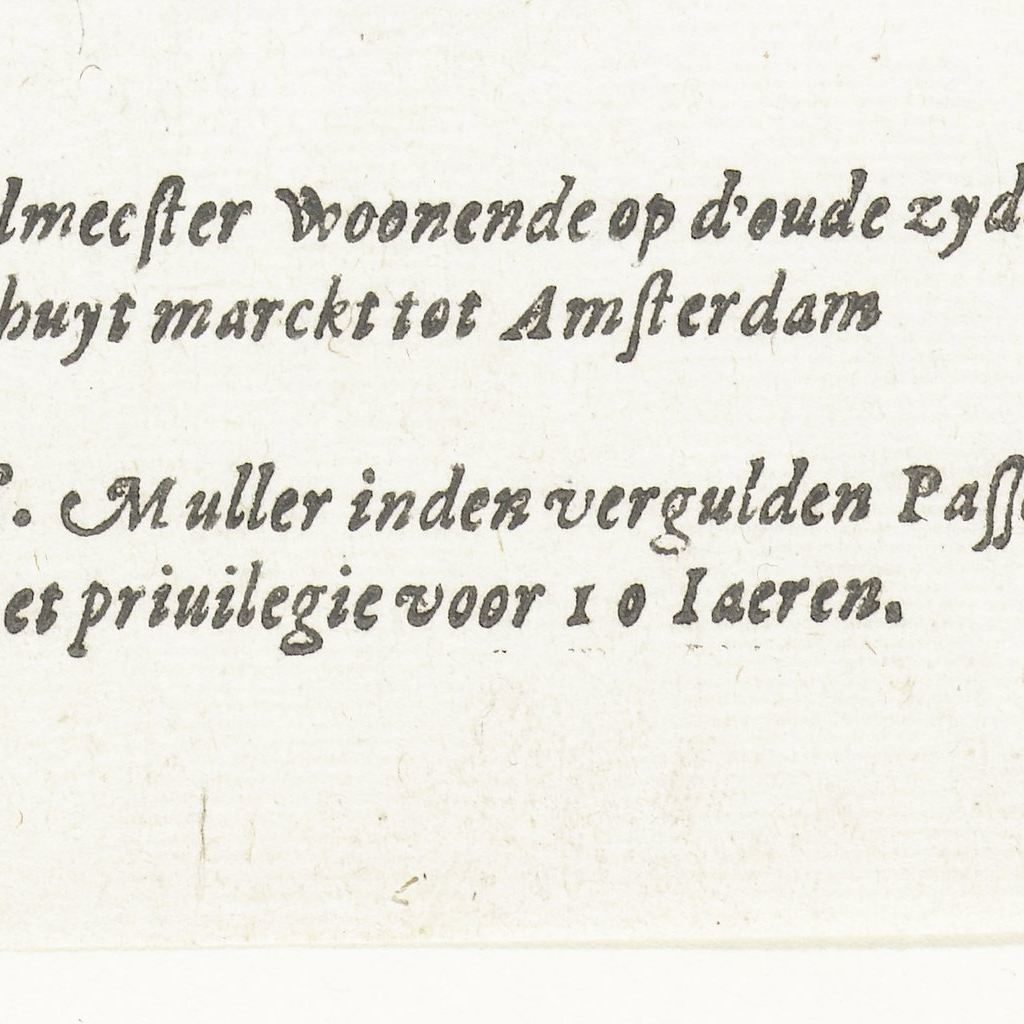 lmeeſter Woonende op d'oude zyd
huyt marckt tot Amſterdam
. Muller inden vergulden Paſſ
et priuilegie voor 10 Iaeren.